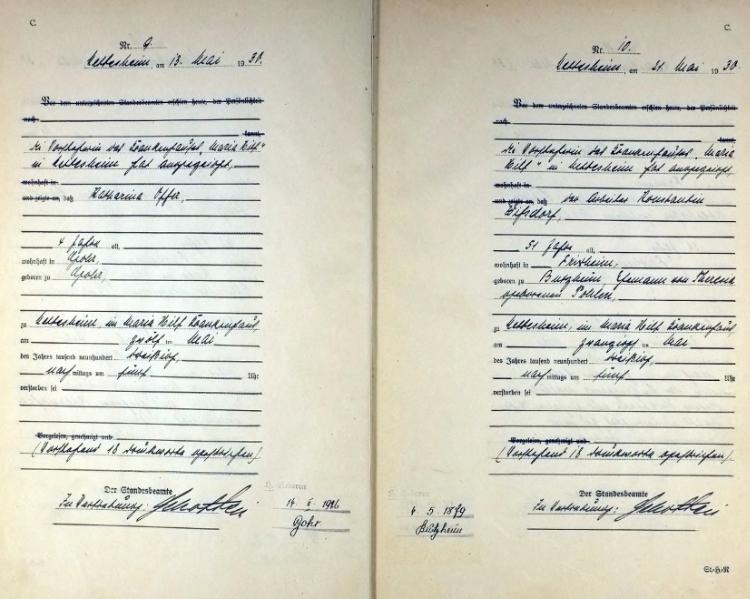 C.
Nr. 9.
Nettesheim, am 13. Mai 1930.
Vor dem unterzeichneten Standesbeamten erschien heute, der Persönlichkeit
nach
kannt,
die Vorsteherin des Krankenhauses „Maria Hilf"
in Nettesheim hat angezeigt,
wohnhaft in
und zeigte an, daß Katharina Offer,
4 Jahre alt,
wohnhaft in Gohr,
geboren zu Gohr,
zu Nettesheim, im Maria Hilf Krankenhaus
am zwölf ten Mai
des Jahres tausend neunhundert dreißig,
nachmittags um fünf Uhr
verstorben sei
Vorgelesen, genehmigt und
(Vorstehend 18 Druckworte gestrichen)
Der Standesbeamte
In Vertretung:
14. 5. 1926
Gohr
C.
Nr. 10.
Nettesheim, am 21. Mai 1930
Vor dem unterzeichneten Standesbeamten erschien heute, der Persönlichkeit
nach
kannt,
die Vorsteherin des Krankenhauses „Maria
Hilf" in Nettesheim hat angezeigt,
wohnhaft in
und zeigte an, daß der Arbeiter Konstantin
51 Jahre alt,
wohnhaft in Frixheim,
geboren zu Butzheim, Ehemann von Theresia
geborenen Pohlen,
zu Nettesheim, im Maria Hilf Krankenhaus
am zwanzigsten Mai
des Jahres tausend neunhundert dreißig,
nachmittags um fünf Uhr
verstorben sei
Vorgelesen, genehmigt und
(Vorstehend 18 Druckworte gestrichen)
Der Standesbeamte
In Vertretung:
4. 5. 1879
Butzheim
St-H-R